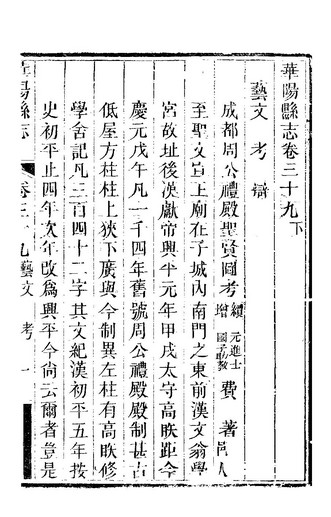 華陽縣志卷三十九下
藝文 考 辯
成都周公禮殿聖賢圖考 續增 元進士國子助教 費著 邑人
至聖文宣王廟在子城內南門之東前漢文翁學
宮故址後漢獻帝興平元年甲戌太守高䀢距今
慶元戊午凡一千四年舊號周公禮殿殿制甚古
低屋方柱柱上狹下廣與今制異左柱有高䀢修
學舍記凡三百四十二字其文紀漢初平五年按
史初平止四年次年改為興平今尙云爾者豈是
華陽縣志 卷三十九 藝文 考 一